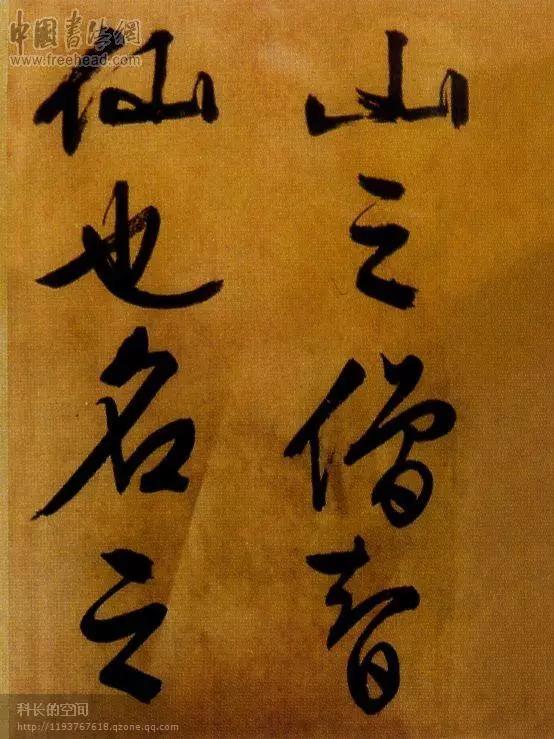 中國書法網
www.freehead.com
山之僧智
仙也名之
科长的空间
http://1193767618.qzone.qq.com